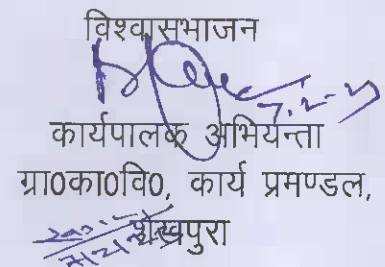 विश्वासभाजन
7.2.23
कार्यपालक अभियन्ता
ग्रा0का0वि0, कार्य प्रमण्डल,
शेखपुरा